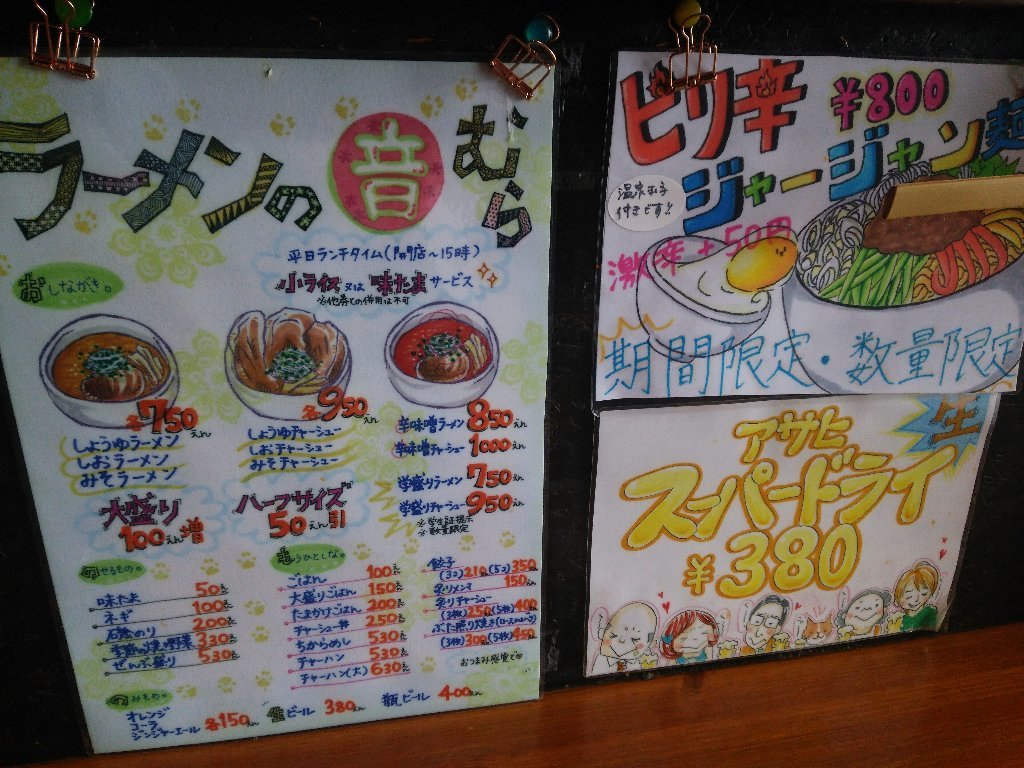 ラーメンの音むら
平日ランチタイム(開店～15時)
小ライス又は味たまサービス
※他券との併用は不可
おしながき。
各750えん
しょうゆラーメン
しおラーメン
みそラーメン
各950えん
しょうゆチャーシュー
しおチャーシュー
みそチャーシュー
辛味噌ラーメン 850えん
辛味噌チャーシュー 1000えん
学盛りラーメン 750えん
学盛りチャーシュー 950えん
※学生証提示
※数量限定
大盛り
100えん増
ハーフサイズ
50えん引
のせるもの。
味たま 50えん
ネギ 100えん
のり 100えん
季節の焼き野菜 330えん
ぜんぶ盛り 530えん
もうひとしな。
ごはん 100えん
大盛りごはん 150えん
たまかけごはん 200えん
チャーシュー丼 250えん
ちからめし 530えん
チャーハン 530えん
チャーハン(大) 630えん
餃子
(3コ)210えん(5コ)350
炙りメンマ 150えん
炙りチャーシュー
(3枚)250(5枚)400
ぶた照り焼き
(3枚)300(5枚)450
おつまみ感覚で
のみもの。
オレンジ
コーラ
ジンジャーエール
各150えん
生ビール 380えん
瓶ビール 400えん
ピリ辛 ¥800
ジャージャン麺
温泉玉子
付きです!
激辛+50円
期間限定・数量限定
生
アサヒ
スーパードライ
¥380